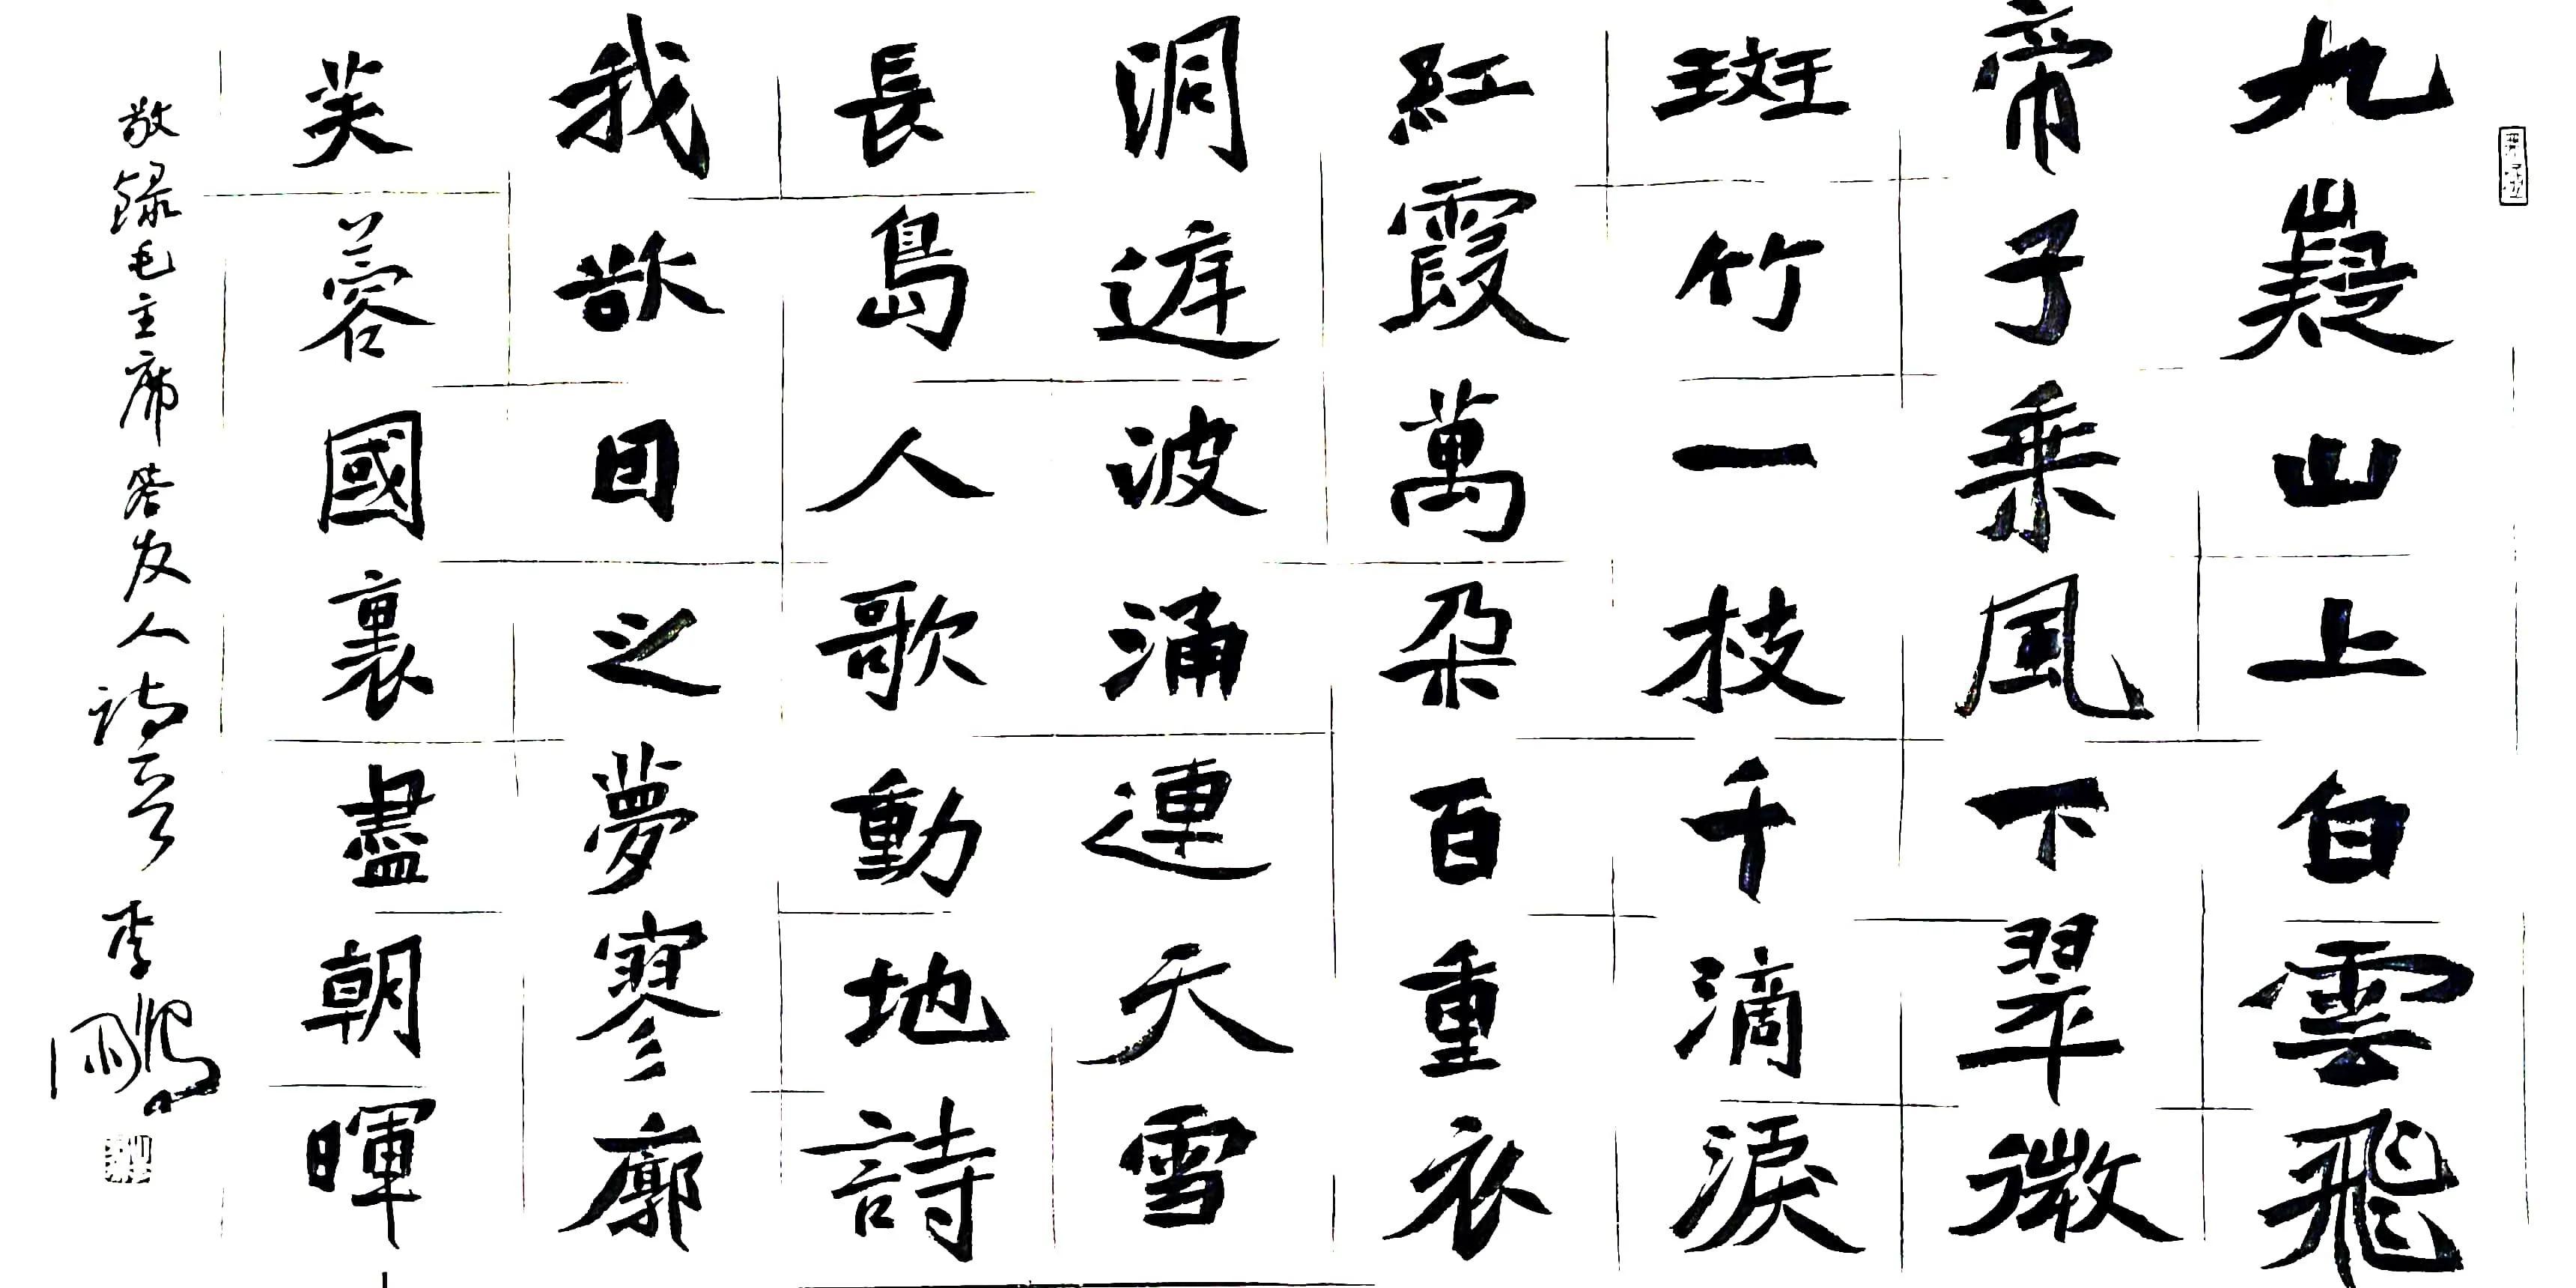 九嶷山上白雲飛
帝子乘風下翠微
斑竹一枝千滴淚
紅霞萬朵百重衣
洞庭波涌連天雪
長島人歌動地詩
我欲因之夢寥廓
芙蓉國裏盡朝暉
敬録毛主席答友人詩 李